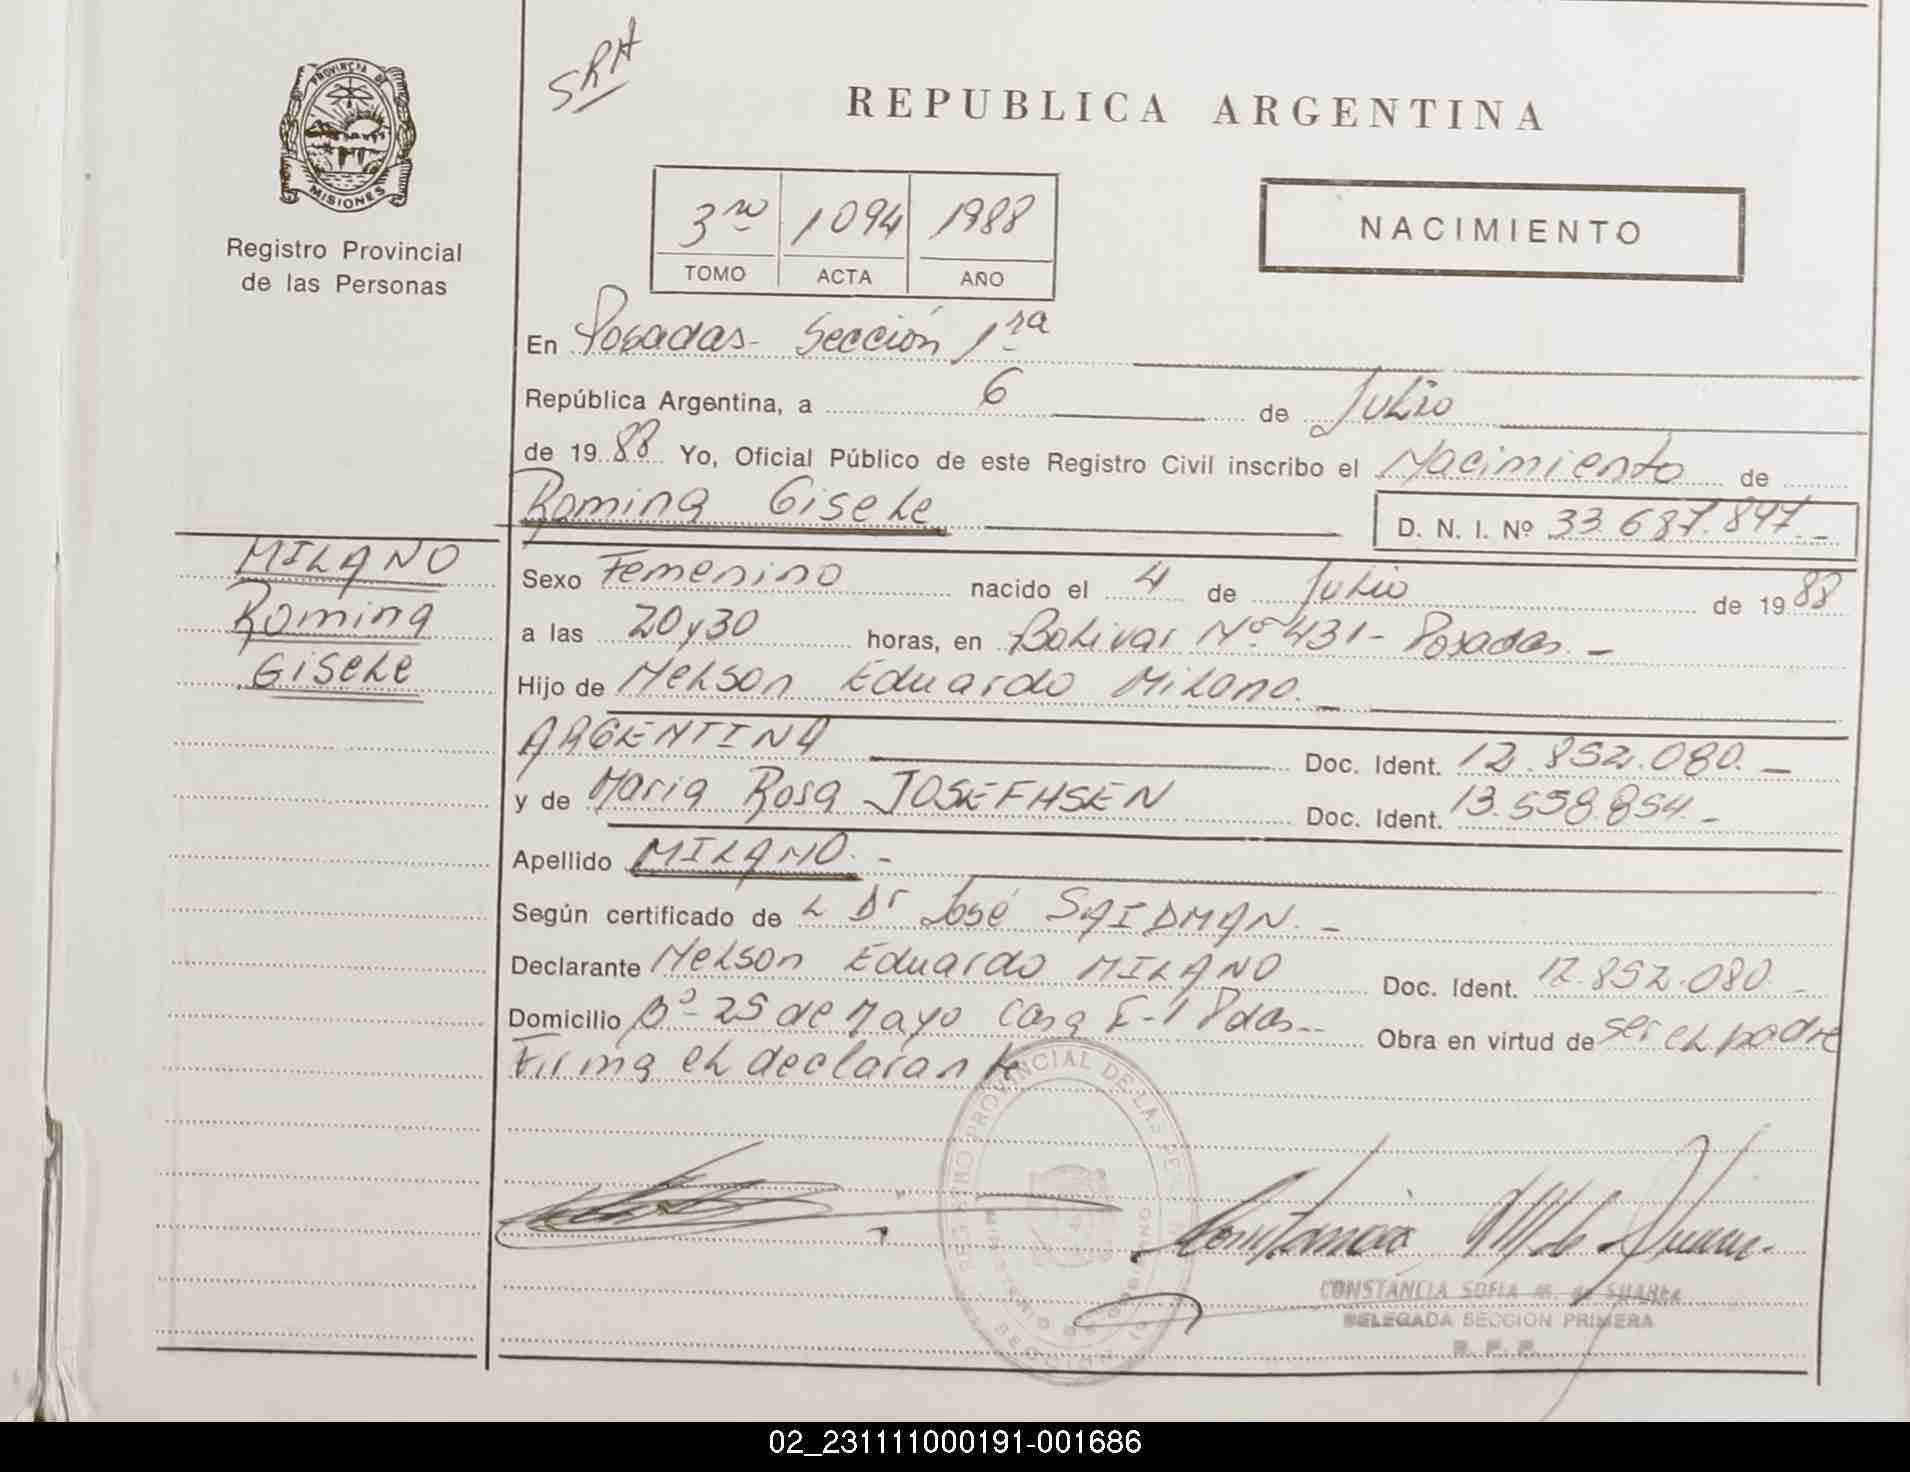 SRA
PROVINCIA DE
MISIONES
Registro Provincial
de las Personas
REPUBLICA ARGENTINA
3ro 1094 1988
TOMO ACTA AÑO
NACIMIENTO
En Posadas- Sección 1ra
República Argentina, a 6 de Julio
de 1988 Yo, Oficial Público de este Registro Civil inscribo el Nacimiento de
Romina Gisele
D. N. I. Nº 33.687.897.-
MILANO
Romina
Gisele
Sexo Femenino nacido el 4 de Julio de 1988
a las 20 y 30 horas, en Bolivar Nº 431- Posadas.-
Hijo de Nelson Eduardo Milano.
ARGENTINA Doc. Ident. 12.852.080.-
y de Maria Rosa JOSEFHSEN Doc. Ident. 13.558.854.-
Apellido MILANO.-
Según certificado de L Dr José SAIDMAN.-
Declarante Nelson Eduardo MILANO Doc. Ident. 12.852.080.-
Domicilio Bº- 25 de Mayo Casa E-1 Pdas.- Obra en virtud de ser el padre
Firma el declarante
REGISTRO PROVINCIAL DE LAS PER
MINISTERIO DE GOBIERNO
SECCION
CONSTANCIA SOFIA M. de SUAREZ
DELEGADA SECCION PRIMERA
R. P. P.
02_231111000191-001686